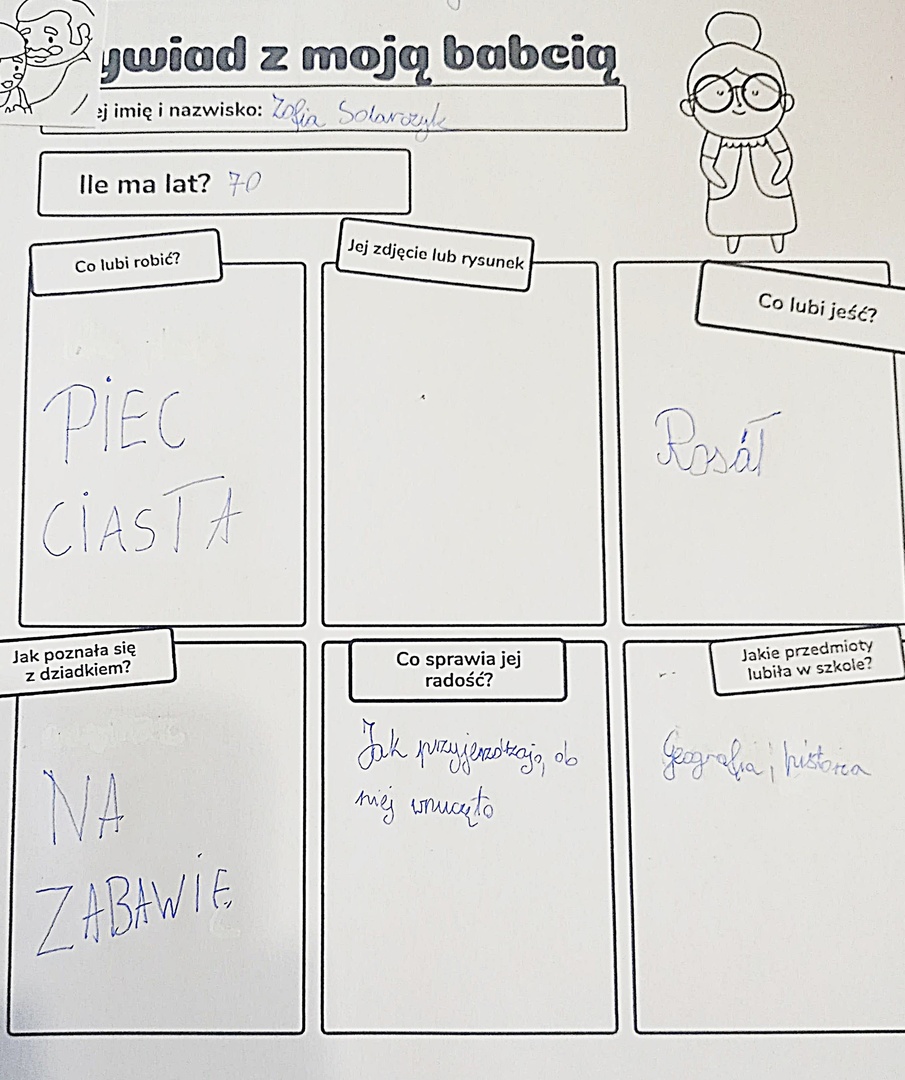 ywiad z moją babcią
ej imię i nazwisko: Zofia Solarczyk
Ile ma lat? 70
Co lubi robić?
PIEC
CIASTA
Jej zdjęcie lub rysunek
Co lubi jeść?
Rosáł
Jak poznała się
z dziadkiem?
NA
ZABAWIE
Co sprawia jej
radość?
Jak przyjeżdżają do
niej wnuczęta
Jakie przedmioty
lubiła w szkole?
Geografia i historia